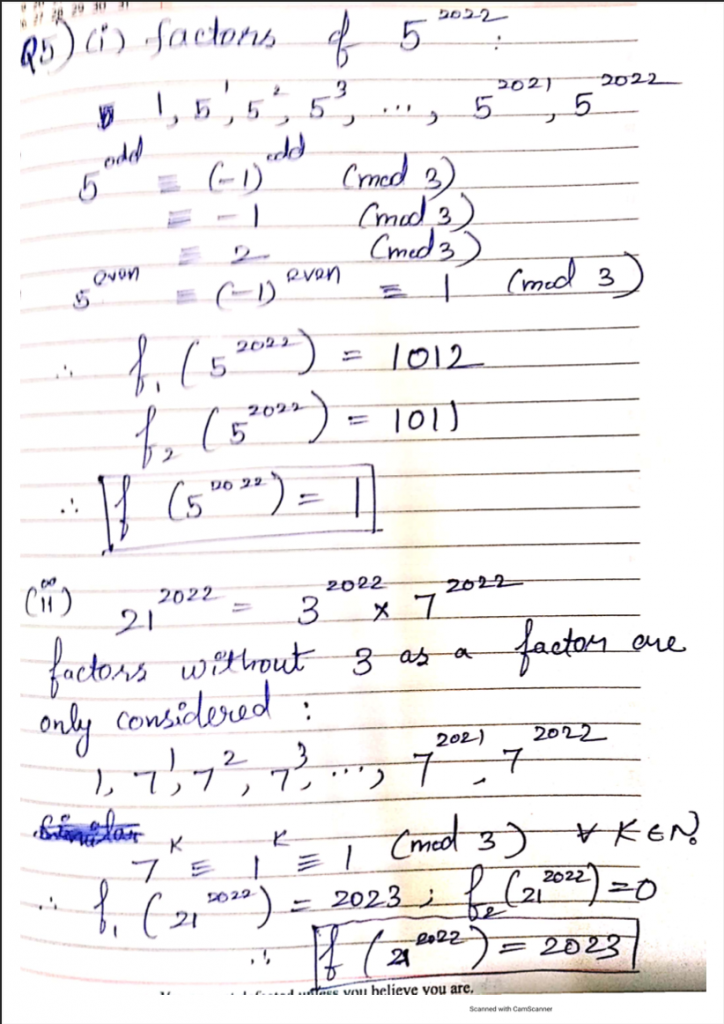 27 28 29 30 31
Q5) (i) factors of 5^2022 :
1, 5^1, 5^2, 5^3, ..., 5^2021, 5^2022
5^odd ≡ (-1)^odd (mod 3)
≡ -1 (mod 3)
≡ 2 (mod 3)
5^even ≡ (-1)^even ≡ 1 (mod 3)
∴ f₁ (5^2022) = 1012
f₂ (5^2022) = 1011
∴ f (5^2022) = 1
(ii) 21^2022 = 3^2022 × 7^2022
factors without 3 as a factor are
only considered :
1, 7^1, 7^2, 7^3, ..., 7^2021, 7^2022
7^K ≡ 1^K ≡ 1 (mod 3) ∀ K ∈ N.
∴ f₁ (21^2022) = 2023 ; f₂ (21^2022) = 0
∴ f (21^2022) = 2023
you believe you are.
Scanned with CamScanner